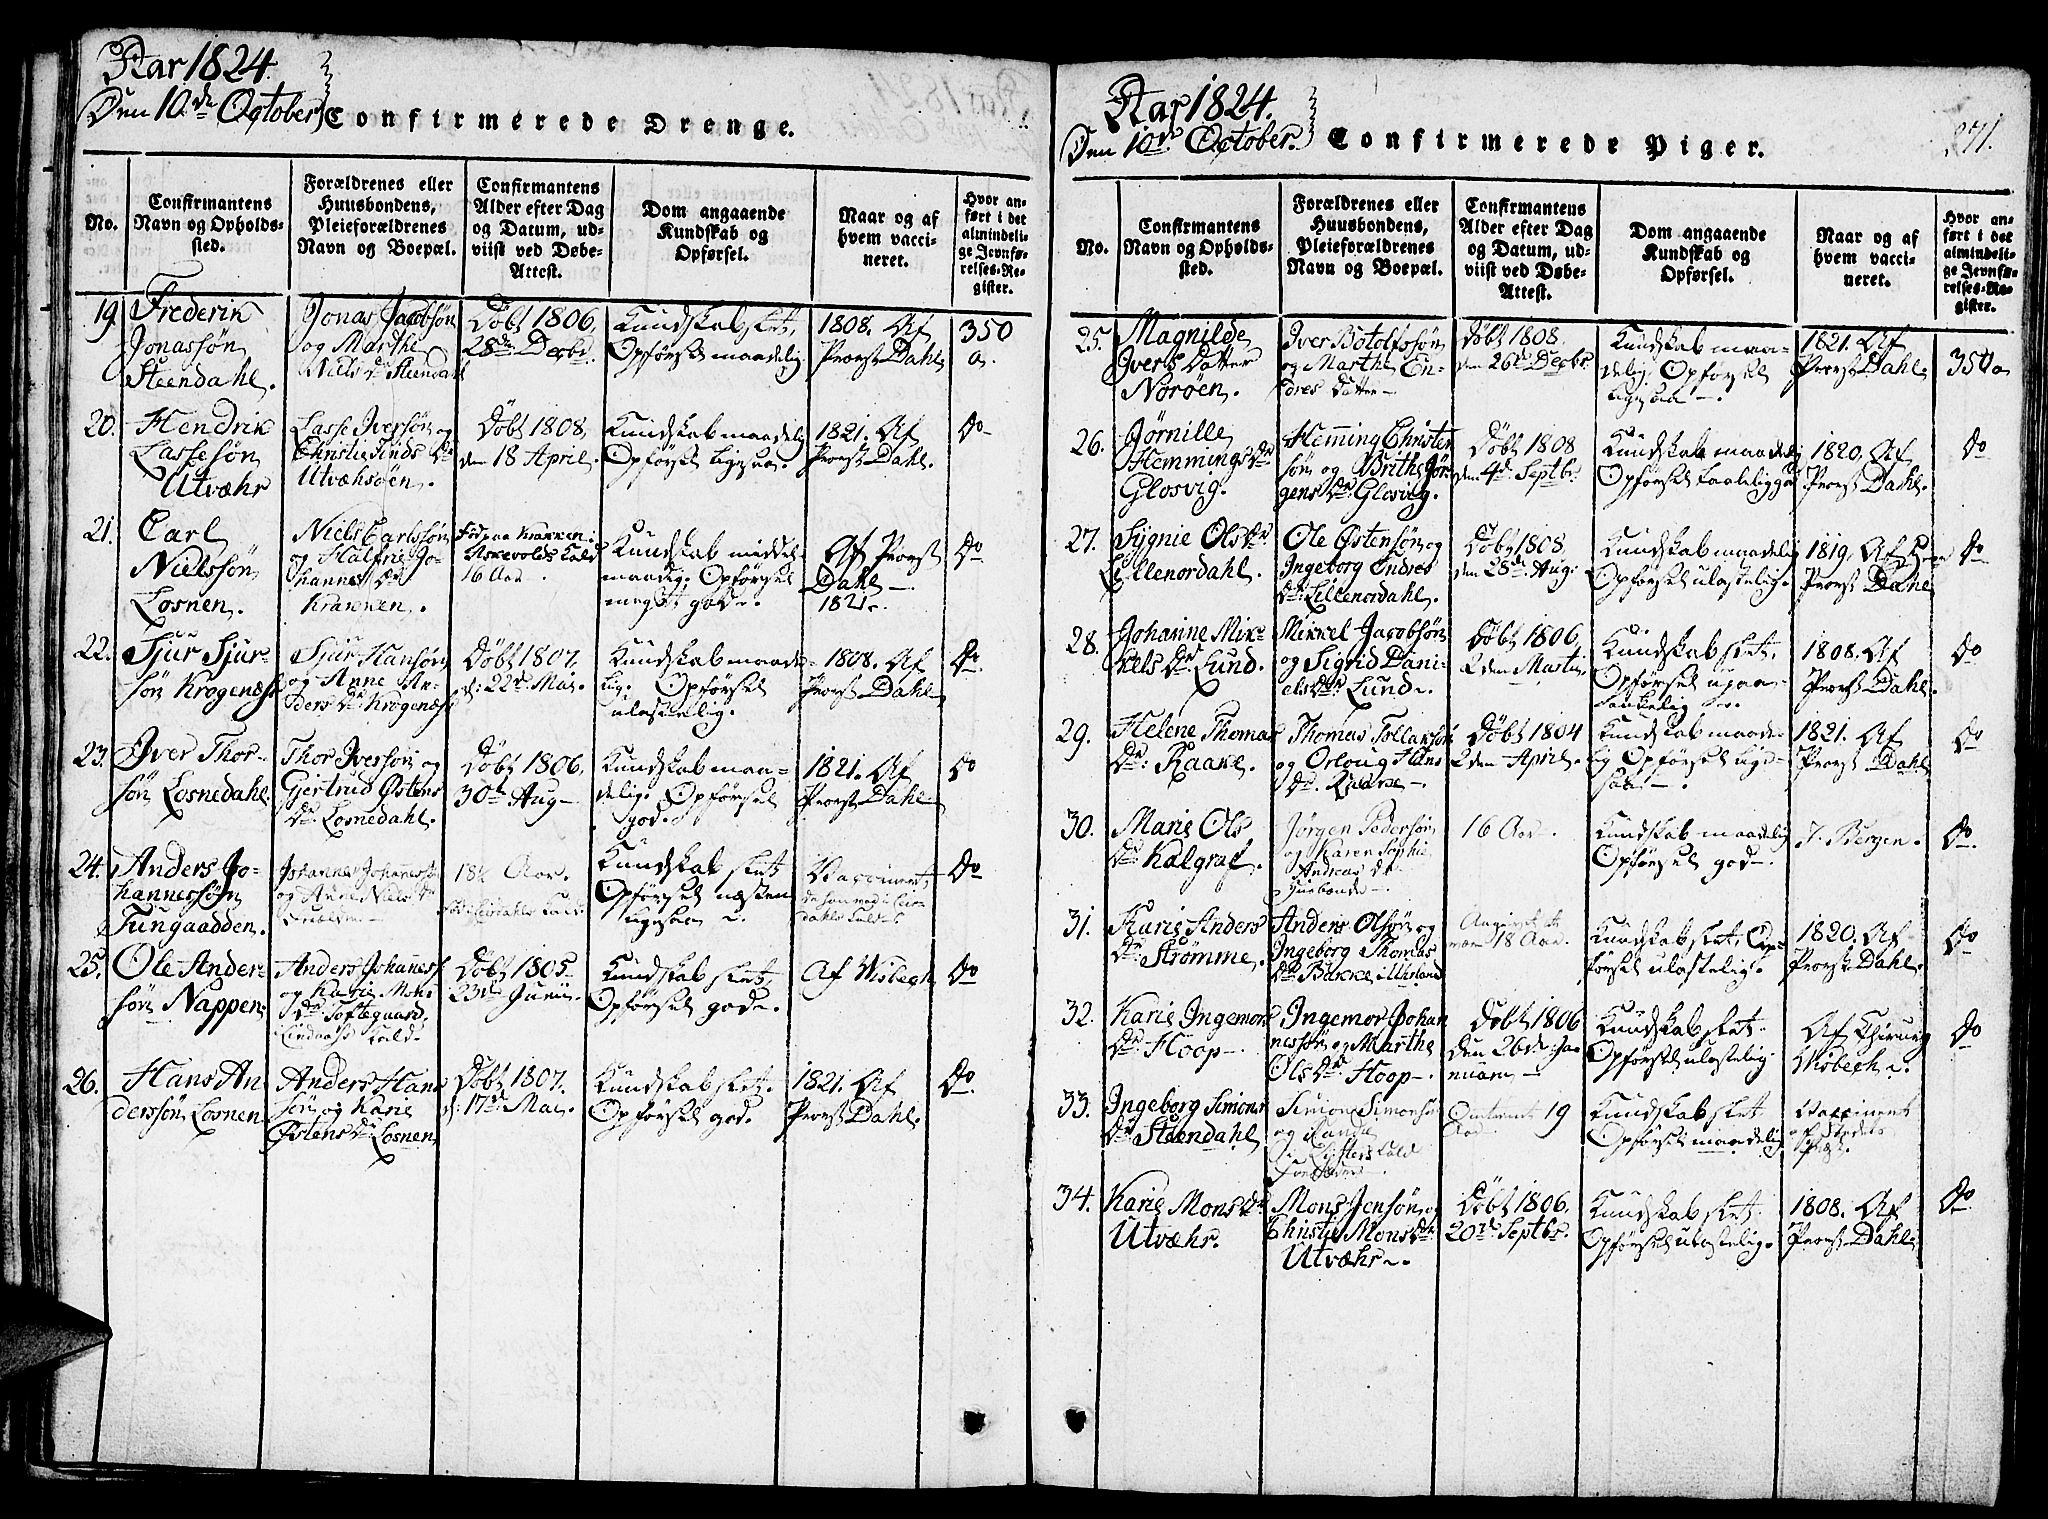 Aar 1824.
Den 10de October
Confirmerede Drenge.
No.
Confirmantens
Navn og Opholds-
sted.
Forældrenes eller
Huusbondens,
Pleieforældrenes
Navn og Boepæl.
Confirmantens
Alder efter Dag
og Datum, ud-
viist ved Døbe-
Attest.
Dom angaaende
Kundskab og
Opførsel.
Naar og af
hvem vacci-
neret.
Hvor an-
ført i det
almindeli-
ge Jevnfø-
relses-Re-
gister.
19.
Frederik
Jonassøn
Steendahl.
Jonas Jacobsøn
og Marthe
Niels Dr Steendahl
Døbt 1806.
28de Decbr.
Kundskab slet,
Opførsel maadelig
1808. Af
Provst Dahl.
350
a.
20.
Hendrik
Lassesøn
Utvæhr
Lasse Iversøn og
Christie Finds Dr
Utvæhrsøen.
Døbt 1808,
den 18 April.
Kundskab maadelig
Opførsel ligesaa.
1821. Af
Provst Dahl.
Do
21.
Carl
Nielssøn
Losnen.
Niels Carlssøn
og Halfrie Jo-
hannes Dr
Krakken.
Fød paa Krakken i
Askevolds Kald
16 Aar.
Kundskab middel-
maadig. Opførsel
meget god.
Af Provst
Dahl
1821.
Do
22.
Sjur Sjur-
søn Krogenæss
Sjur Hansøn
og Anne An-
ders Dr Krogenæss
Døbt 1807.
d: 22de Mai.
Kundskab maade-
lig. Opførsel
ulastelig.
1808. Af
Provst Dahl
Do
23.
Iver Thor-
søn Losnedahl
Thor Iversøn og
Gjertrud Østens
Dr. Losnedahl.
Døbt 1806.
30te Aug
Kundskab maa-
delig. Opførsel
god.
1821. Af
Provst Dahl
Do
24.
Anders Jo-
hannessøn
Tungaadden.
Johannes Johannes
og Anne Niels Dr
18½ Aar.
Kundskab slet
Opførsel næsten
ligesaa.
Vaccineret
Do
25.
Ole Ander-
søn Nappen
Anders Johannes
og Karie Mons
Dr Toftegaard,
Lindaass Kald.
Døbt 1805
23de Junii
Kundskab slet.
Opførsel god.
Af Wisbech
Do
26.
Hans An
derssøn Losnen
Anders Hans
søn og Karie
Østens Dr Losnen
Døbt 1807.
d: 17de Mai.
Kundskab slet.
Opførsel god.
1821. Af
Provst Dahl.
Do
Aar 1824.
Den 10de October.
Confirmerede Piger.
271.
No.
Confirmantens
Navn og Opholds-
sted.
Forældrenes eller
Huusbondens,
Pleieforældrenes
Navn og Boepæl.
Confirmantens
Alder efter Dag
og Datum, ud-
viist ved Døbe-
Attest.
Dom angaaende
Kundskab og
Opførsel.
Naar og af
hvem vacci-
neret.
Hvor an-
ført i det
almindeli-
ge Jevnfø-
relses-Re-
gister.
25.
Magnilde
Ivers Datter
Norøen.
Iver Botolfssøn
og Marthe En-
dres Datter
Døbt 1808
den 26de Decbr.
Kundskab maa-
delig. Opførsel
ligesaa.
1821. Af
Provst Dahl.
350a
26.
Jørnille
Hemmings Dr
Glosvig.
Hemming Christen
søn og Brithe Jør
gens Dr Glosvig.
Døbt 1808
den 4de Septbr.
Kundskab maadelig
Opførsel taalelig god
1820. Af
Provst Dahl.
Do
27.
Sygnie Ols Dr
Lillenordahl.
Ole Østensøn og
Ingeborg Endres
Dr: Lillenordahl.
Døbt 1808.
den 28de Aug:
Kundskab maadelig
Opførsel ulastelig.
1819. Af Hr.
Provst Dahl
Do
28.
Johanne Mik-
kels Dr Lund.
Mikkel Jacobsøn
og Sigrid Dani-
els Dr Lund.
Døbt 1806.
2den Martii
Kundskab slet.
Opførsel upaa-
tankelig
1808. Af
Provst Dahl.
Do
29.
Helene Thomas
Dr: Raake.
Thomas Tollaksøn
og Orloug Hans
Dr. Raake.
Døbt 1804
2den April.
Kundskab maade-
lig Opførsel lige-
saa.
1821. Af
Provst Dahl
Do
30.
Marie Ols
Dr: Kalgraf.
Jørgen Pedersøn
og Karen Sophie
Andreas Dr
16 Aar.
Kundskab maadelig
Opførsel god.
I Bergen.
Do
31.
Karie Anders
Dr: Strømme.
Anders Olsøn og
Ingeborg Thomas
Dr Bakke i Uhrland
18 Aar.
Kundskab slet, Op-
førsel ulastelig.
1820. Af
Provst Dahl.
Do
32.
Karie Ingemors
Dr: Hoop.
Ingemor Johan
nessøn og Marthe
Ols Dr Hoop.
Døbt 1806
den 26de Ja
nuarii
Kundskab slet.
Opførsel ulastelig
Af Chirurg
Wisbech.
Do
33.
Ingeborg Simons
Dr Steendahl
Simon Simonsøn
og Randi
i Lysters Kald
Omtrent 19
Aar
Kundskab slet
Opførsel maadelig
Vaccineret
af Stedets
Præst.
34.
Karie Mons Dr
Utvæhr.
Mons Jensøn og
Christie Mons Dr
Utvæhr.
Døbt 1806.
20de Septbr.
Kundskab slet.
Opførsel ulastelig.
1808. Af
Provst Dahl
Do